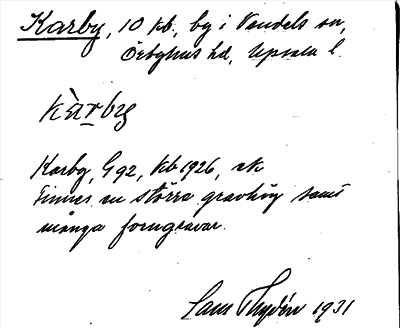 Karby, 10 kb., by i Vendels sn,
Örbyhus hd, Uppsala l.
kàrby
Karby, G 92, kb 1926,
Finnes en större gravhög samt
många forngravar.
Lars Thydén 1931